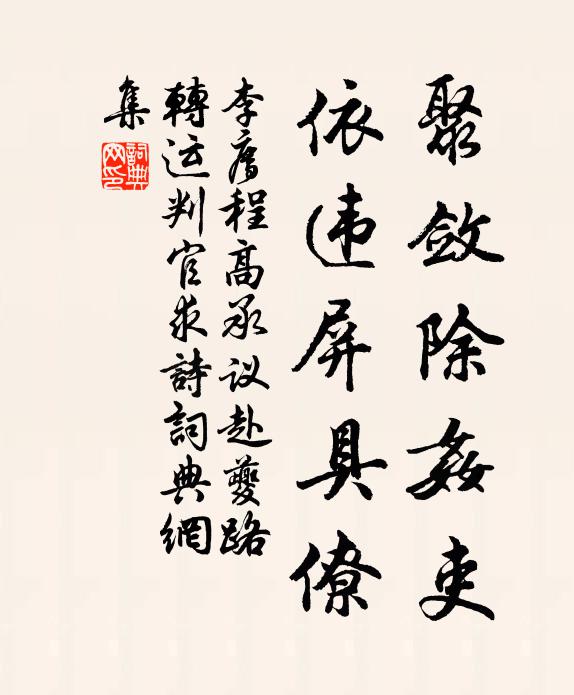 聚斂除姦吏
依违屏具僚
李廌程高承议赴夔路
轉运判官求詩詞典網
集
詞典
网印